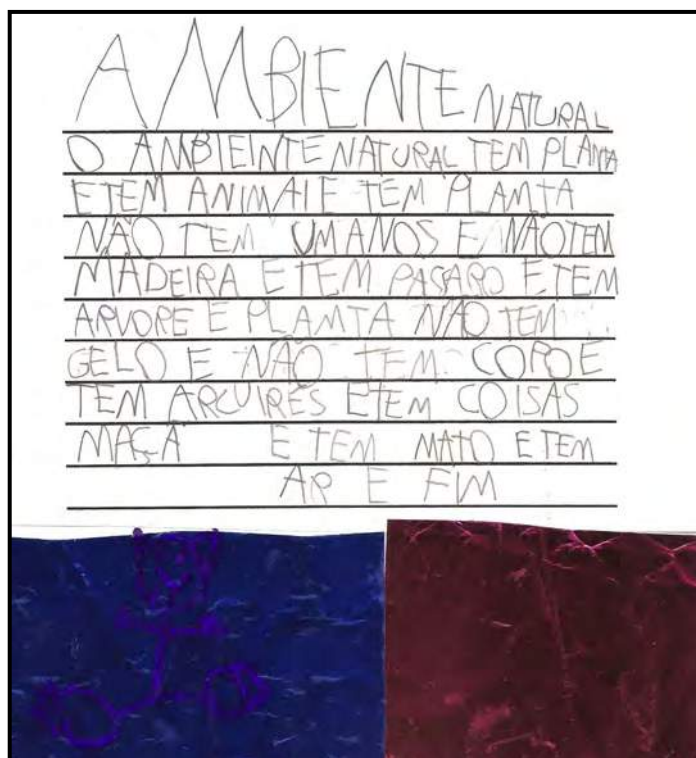 AMBIENTE NATURAL
O AMBIEINTE NATURAL TEM PLANTA
E TEM ANIMAI E TEM PLAMTA
NÃO TEM UMANOS E NÃO TEM
MADEIRA E TEM PASARO E TEM
ARVORE E PLAMTA NÃO TEM
GELO E NÃO TEM COPO E
TEM ARCUIRES E TEM COISAS
MAÇÃ E TEM MATO E TEM
AR E FIM